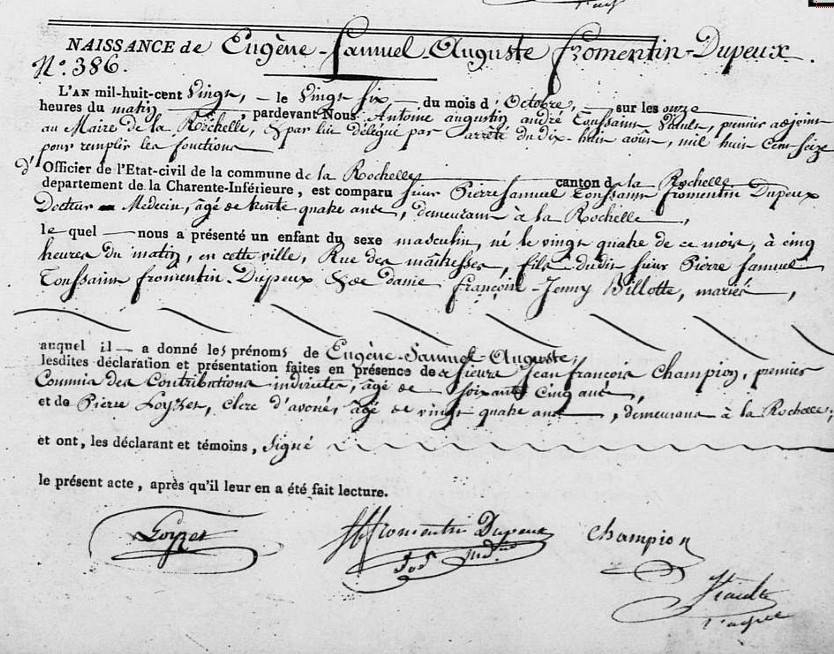 NAISSANCE de Eugène-Samuel-Auguste Fromentin-Dupeux.
N.º 386.
L'AN mil-huit-cent Vingt, le Vingt Six du mois d'Octobre, sur les onze
heures du matin, pardevant Nous Antoine augustin andré Toussaint, premier adjoint
au Maire de la Rochelle, & par lui délégué par arrêté du dix-huit août, mil huit cent seize
pour remplir les fonctions
d'Officier de l'Etat-civil de la commune de la Rochelle canton de la Rochelle
département de la Charente-Inférieure, est comparu Sieur Pierre Samuel Toussaint fromentin Dupeux
Docteur-Médecin, âgé de trente quatre ans, demeurant à la Rochelle,
le quel nous a présenté un enfant du sexe masculin, né le vingt quatre de ce mois, à cinq
heures du matin, en cette ville, Rue des maîtresses, fils dudit Sieur Pierre Samuel
Toussaint fromentin-Dupeux & de dame françoise-Jenny Billotte, mariés,
auquel il a donné les prénoms de Eugène-Samuel-Auguste;
lesdites déclaration et présentation faites en présence de Sieurs Jean françois Champion, premier
Commis des Contributions indirectes, âgé de Soixante Cinq ans,
et de Pierre Loyzet, clerc d'avoué, âgé de vingt quatre ans, demeurans à la Rochelle;
et ont, les déclarant et témoins, signé
le présent acte, après qu'il leur en a été fait lecture.
Loyzet fromentin Dupeux Champion